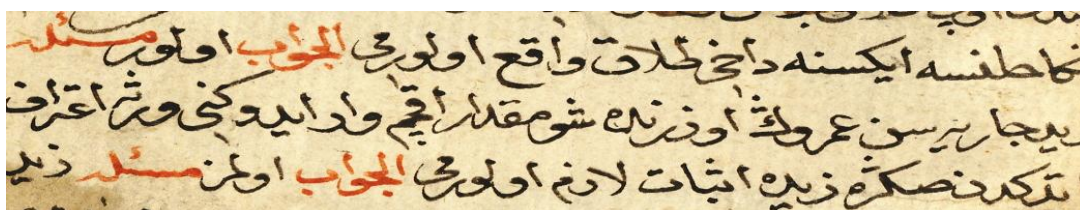 ایکسنه داخی طلاق واقع اولورمی الجواب اولور مسئله
عمروڭ اوزرنده شو مقدار اقچم وار ایدوکنی ورثه اعتراف
تدکدن صکره زیده اثبات لازم اولورمی الجواب اولمز مسئله زید